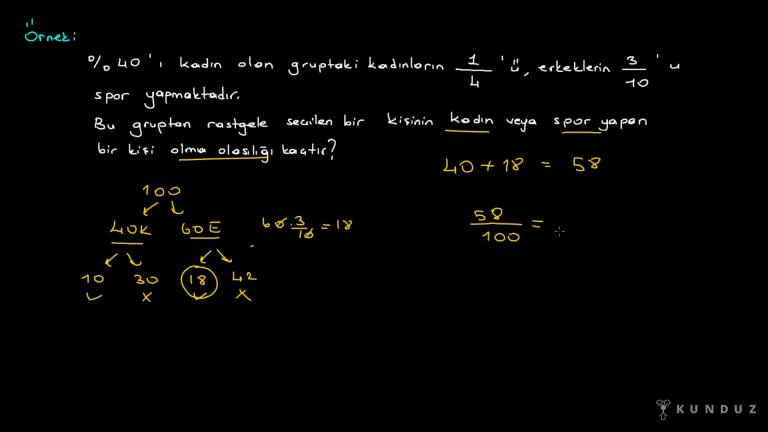 Örnek:
%40'ı kadın olan gruptaki kadınların 1/4'ü, erkeklerin 3/10'u
spor yapmaktadır.
Bu gruptan rastgele seçilen bir kişinin kadın veya spor yapan
bir kişi olma olasılığı kaçtır?
40 + 18 = 58
100
40K 60E 60 · 3/10 = 18
58/100 =
10 30 18 42
✓ X ✓ X
KUNDUZ